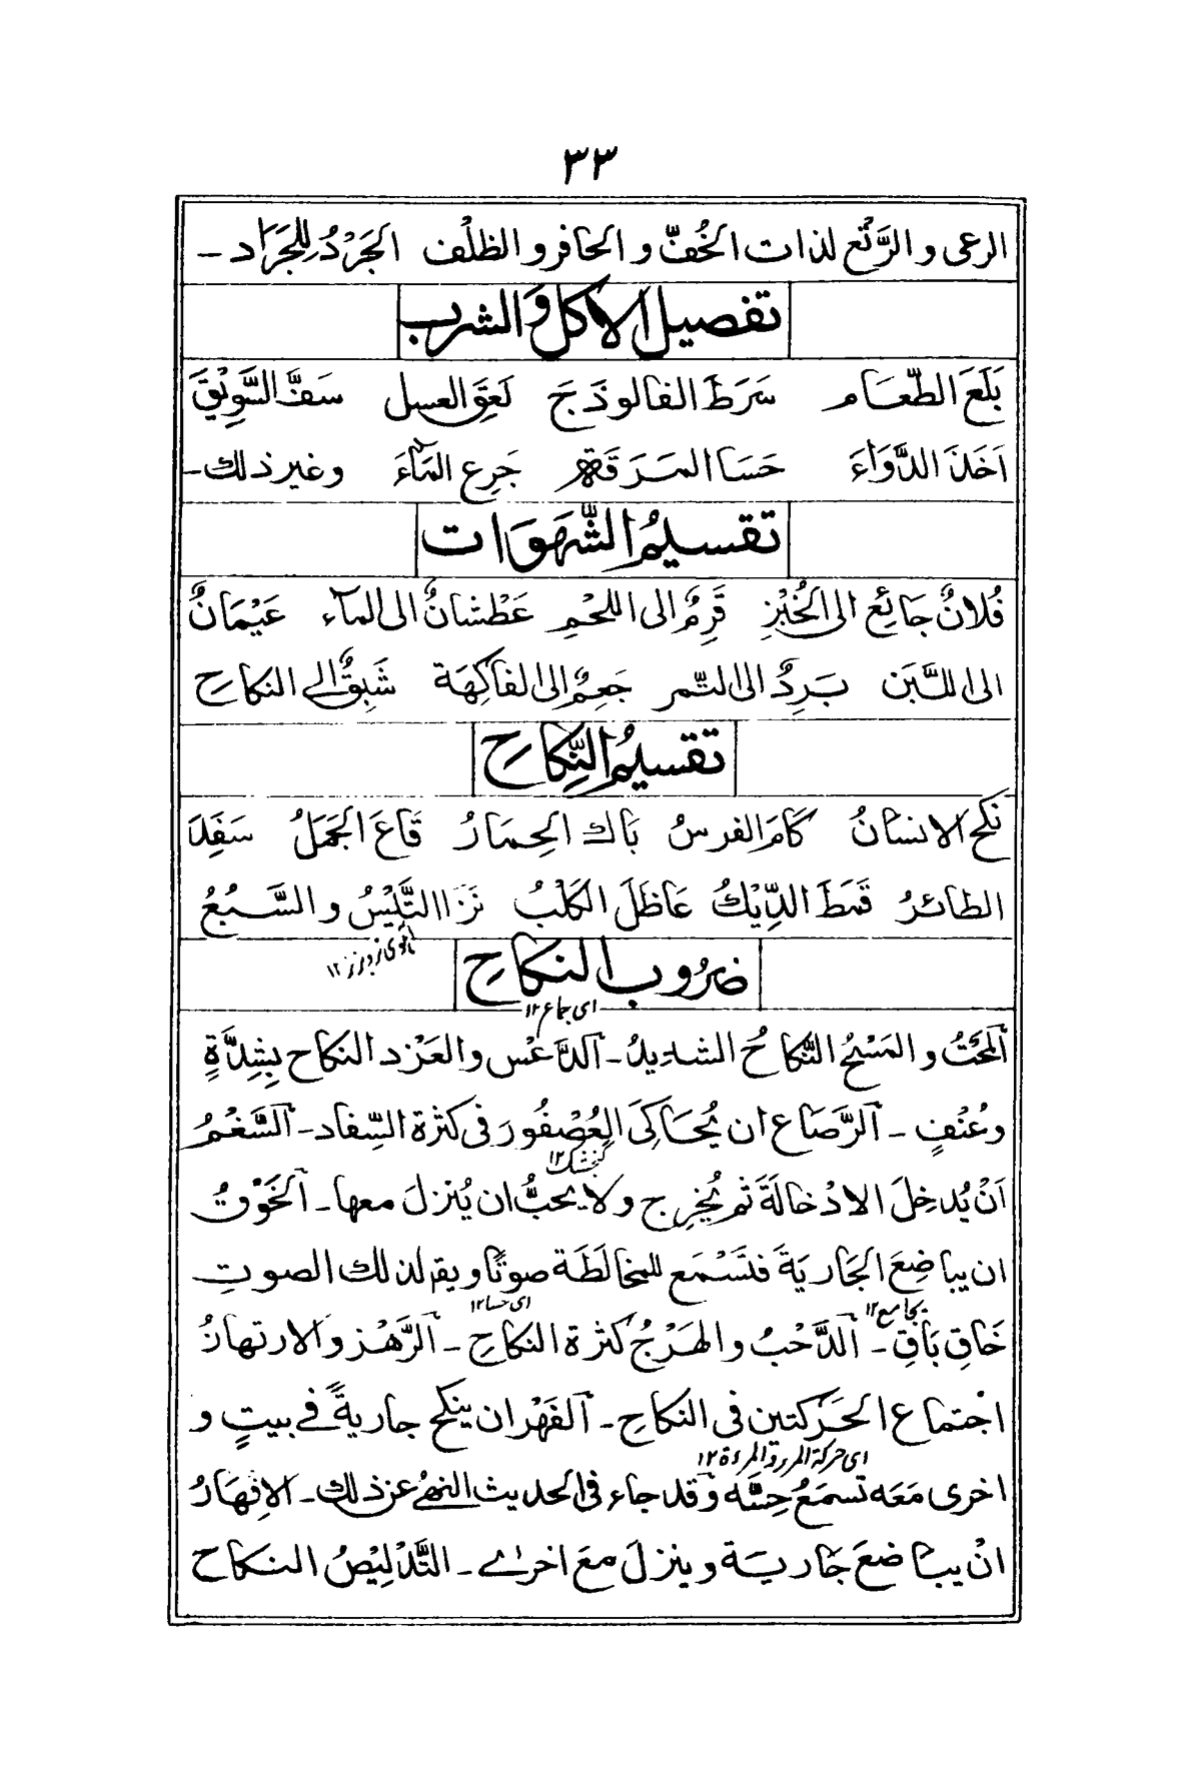 ٣٣
الرعى و الرَّتْع لذات الخُفّ و الحافر و الظلْف الجَرْدُ لِلجَرَاد ـ
تفصيل الأكل والشرب
بَلَعَ الطّعَام سَرَطَ الفالوذَجَ لَعِقَ العسل سَفَّ السَّوِيْقَ
اَخَذَ الدَّوَاءَ حَسَا المرَقَةَ جَرِعَ المَآءَ وغير ذلك ـ
تقسيمُ الشَّهَوَات
فُلانٌ جَائِعٌ الى الخُبْزِ قَرِمٌ الى اللحْمِ عَطْشانٌ الى المآء عَيْمَانٌ
الى اللَّبَن بَرِدٌ الى التّمر جَعِمٌ الى الفاكِهَة شَبِقٌ الى النكاحِ
تقسيمُ النِّكاحِ
نَكَحَ الانسانُ كَامَ الفرسُ بَاكَ الحِمَارُ قَاعَ الجَمَلُ سَفِدَ
الطائرُ قَمَطَ الدِّيْكُ عَاظَلَ الكَلْبُ نَزَا التَّيْسُ و السَّبُعُ
ضرُوب النكَاحِ
اى جماع ١٢
اَلمَحْتُ و المَسْحُ النّكاحُ الشديدُ ـ اَلدَّعْس و العَزْد النكاح بِشِدَّةٍ
وعُنْفٍ ـ اَلرَّصَاع ان يُحَاكِىَ العُصْفُورَ فى كثرة السِّفاد ـ اَلسَّغْمُ
كنجشك ١٢
اَنْ يُدخِلَ الادْخالَةَ ثم يُخرِج ولا يحبُّ ان يُنزلَ معها ـ اَلخَوْقُ
ان يباضِعَ الجَاريَةَ فتَسْمَع للمخالَطَة صوتًا ويقم لذلك الصوتِ
يجامع ١٢ اى حسا ١٢
خَاقِ بَاقِ ـ اَلدَّحْبُ و الهَرْجُ كثرة النكاحِ ـ اَلرَّهْز و الارتهازُ
اجْتماع الحَرَكتين فى النكاحِ ـ اَلفَهْر ان ينكح جاريةً فى بيتٍ و
اى حركة المرء والمرءة ١٢
اخرى مَعَه تسمَعُ حِسَّه وقد جاء فى الحديث النهىُ عن ذلك ـ الاِفْهَارُ
انْ يباضعَ جَاريَة وينزلَ معَ اخرٰى ـ التَّدْلِيْصُ النكاح